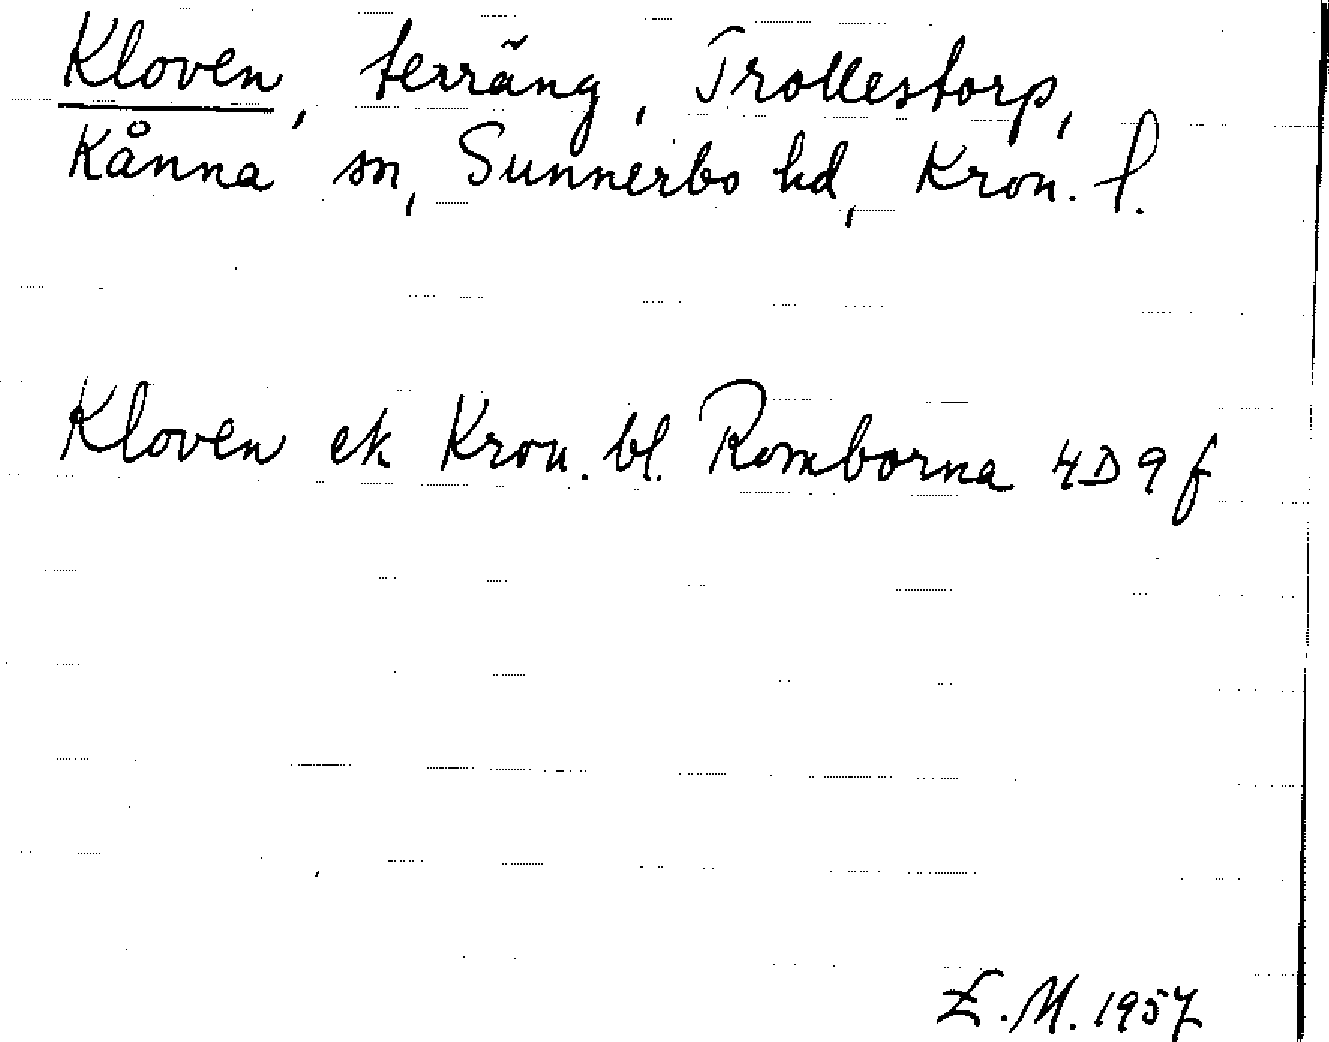 Kloven, terräng, Trollestorp,
Kånna sn, Sunnerbo hd, Kron. l.
Kloven ek Kron. bl. Romborna 4D9f
E.M. 1957